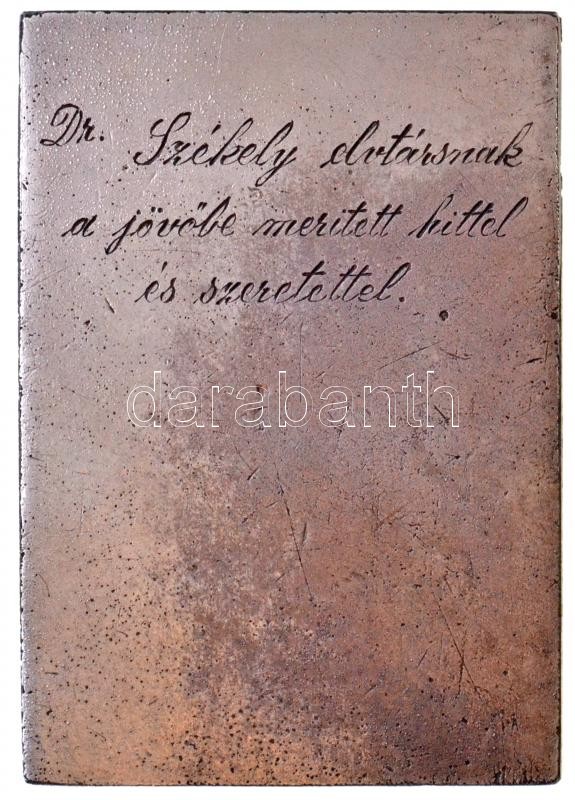 Dr. Székely elvtársnak
a jövőbe merített hittel
és szeretettel.
darabanth